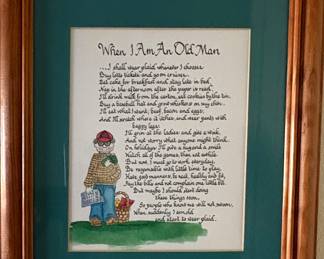 When I Am An Old Man
...I shall wear plaid whenever I choose.
Buy lotto tickets and go on cruises.
Eat cake for breakfast and stay late in bed,
Nap in the afternoon after the paper is read.
I'll drink milk from the carton, eat cookies by the tin,
Buy a baseball hat and grow whiskers on my chin.
I'll eat what I want, beef, bacon and eggs,
And I'll scratch where it itches and wear pants with
baggy legs.
I'll grin at the ladies and give a wink,
And not worry what anyone might think.
On holidays I'll give a hug and a smile
Watch all of the games, then rest awhile.
But now I must go to work everyday,
Be responsible with little time to play.
Have good manners, be neat, healthy and fit,
Pay the bills and not complain one little bit.
But maybe I should start doing
these things soon,
So people who know me will not swoon,
When suddenly I am old
and start to wear plaid.